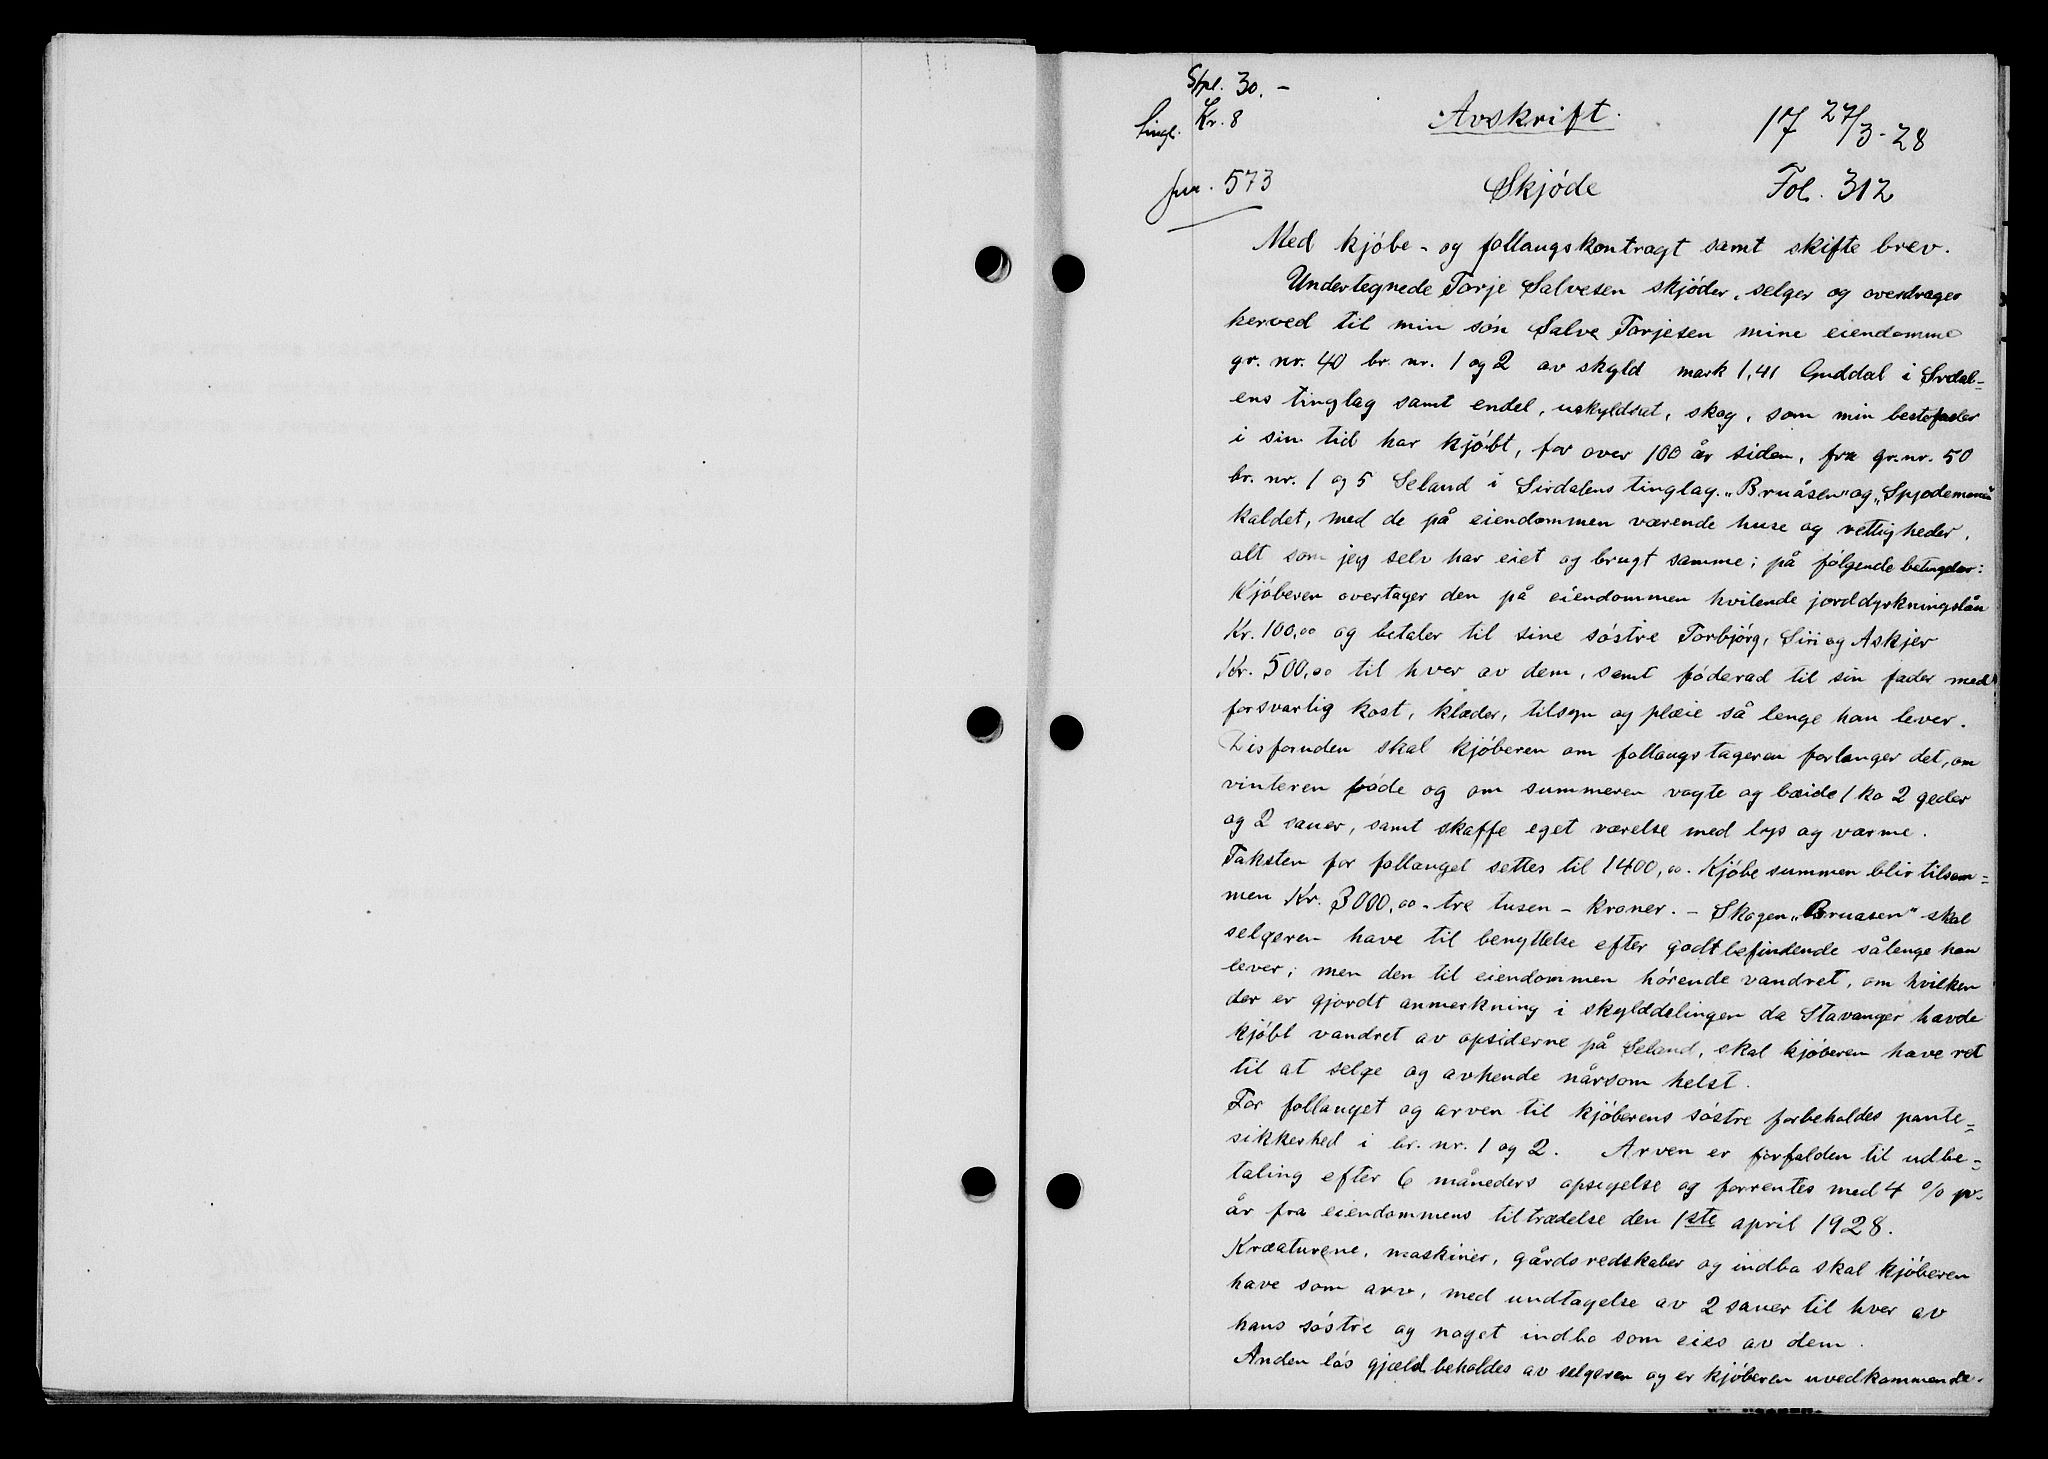 Stpl. 30.-
Tingl. Kr. 8
Avskrift.
17 27/3-28
jnr. 573
Skjöde
Fol. 312
Med kjöbe- og follaugskontragt samt skifte brev.
Undertegnede Torje Salvesen skjöder, selger og overdrager
herved til min sön Salve Torjesen mine eiendomme
gr. nr. 40 br. nr. 1 og 2 av skyld mark 1,41 Guddal i Sirdal=
ens tinglag samt endel, uskyldsat, skog, som min bestefader
i sin tid har kjöbt, for over 100 år siden, fra gr.nr. 50
br. nr. 1 og 5 Seland i Sirdalens tinglag. "Bruåsen" og
kaldet, med de på eiendommen værende huse og rettigheder,
alt som jeg selv har eiet og brugt samme; på fölgende
Kjöberen overtager den på eiendommen hvilende jorddyrkningslån
Kr. 100,00 og betaler til sine söstre Torbjörg, Siri og Askjer
Kr. 500,00 til hver av dem, samt föderad til sin fader med
forsvarlig kost, klæder, tilsyn og plæie så lenge han lever.
Disforuden skal kjöberen om follaugstageren forlanger det, om
vinteren föde og om summeren vogte og bæide 1 ko 2 geder
og 2 sauer, samt skaffe eget værelse med lys og varme.
Taksten for follauget settes til 1400,00. Kjöbe summen blir tilsam=
men Kr. 3000,00 - tre tusen - kroner. - Skogen "Bruasen" skal
selgeren have til benyttelse efter godtbefindende sålenge han
lever; men den til eiendommen hörende vandret, om hvilken
der er gjordt anmerkning i skylddelingen da Stavanger havde
kjöbt vandret av opsiderne på Seland, skal kjöberen have ret
til at selge og avhende nårsom helst.
For follauget og arven til kjöberens söstre forbeholdes pante=
sikkerhed i br. nr. 1 og 2. Arven er forfalden til udbe=
taling efter 6 måneders opsigelse og forrentes med 4 % pr.
år fra eiendommens tiltrædelse den 1ste april 1928.
Kræaturene, maskiner, gårdsredskaber og indbo skal kjöberen
have som arv, med undtagelse av 2 sauer til hver av
hans söstre og noget indbo som eies av dem.
Anden lös gjæld beholdes av selgeren og er kjöberen uvedkommende.